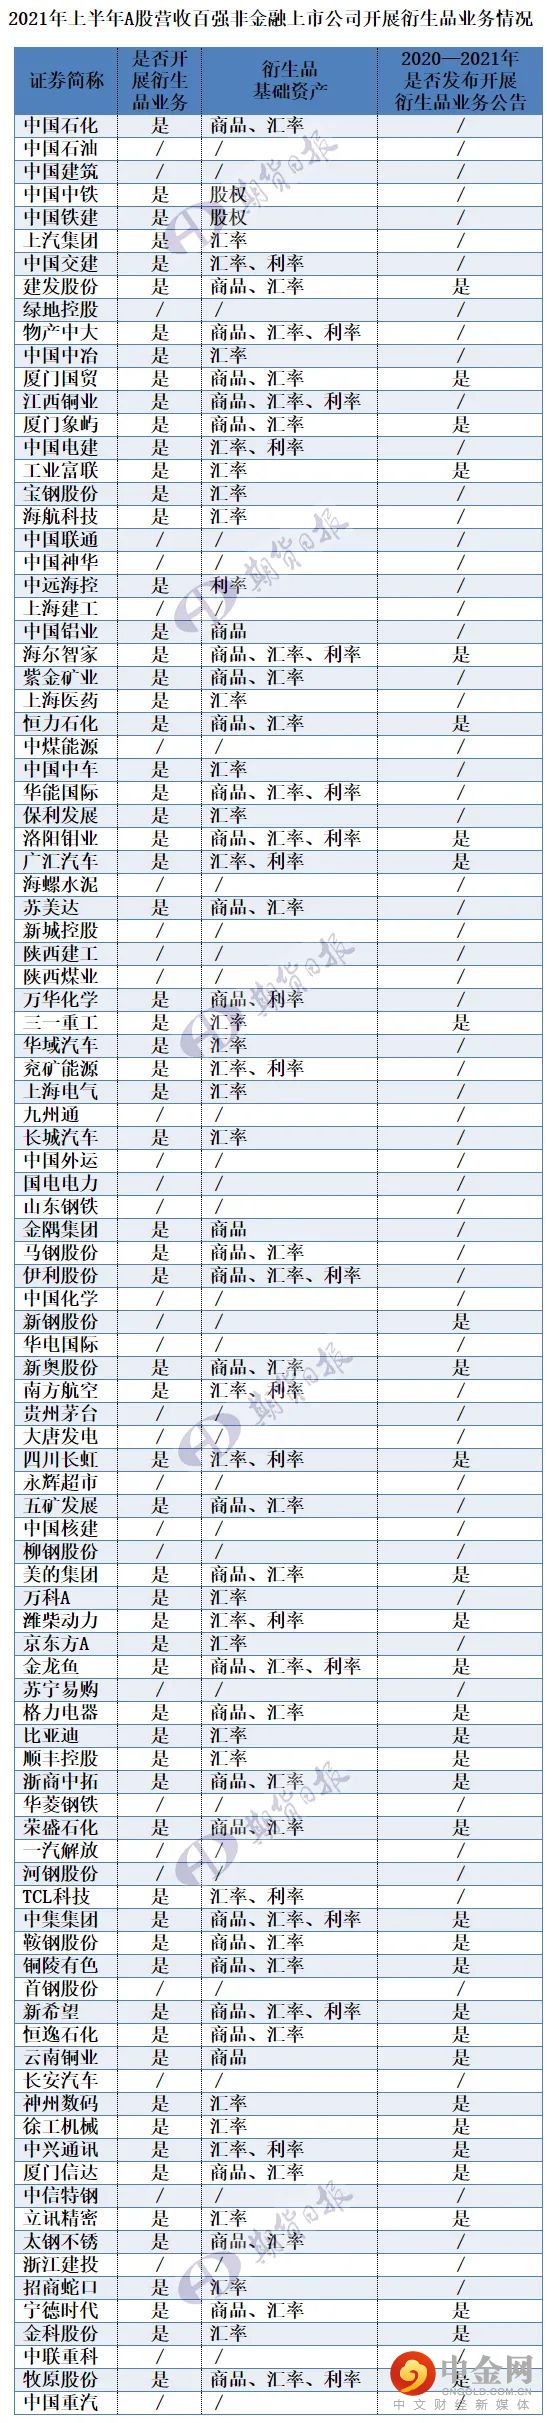 2021年上半年A股营收百强非金融上市公司开展衍生品业务情况
证券简称 是否开展衍生品业务 衍生品基础资产 2020—2021年是否发布开展衍生品业务公告
中国石化 是 商品、汇率 /
中国石油 / / /
中国建筑 / / /
中国中铁 是 股权 /
中国铁建 是 股权 /
上汽集团 是 汇率 /
中国交建 是 汇率、利率 /
建发股份 是 商品、汇率 是
绿地控股 / / /
物产中大 是 商品、汇率、利率 /
中国中冶 是 汇率 /
厦门国贸 是 商品、汇率 是
江西铜业 是 商品、汇率、利率 /
厦门象屿 是 商品、汇率 是
中国电建 是 汇率、利率 /
工业富联 是 汇率 是
宝钢股份 是 汇率 /
海航科技 是 汇率 /
中国联通 / / /
中国神华 / / /
中远海控 是 利率 /
上海建工 / / /
中国铝业 是 商品 /
海尔智家 是 商品、汇率、利率 是
紫金矿业 是 商品、汇率 /
上海医药 是 汇率 /
恒力石化 是 商品、汇率 是
中煤能源 / / /
中国中车 是 汇率 /
华能国际 是 商品、汇率、利率 /
保利发展 是 汇率 /
洛阳钼业 是 商品、汇率、利率 是
广汇汽车 是 汇率、利率 是
海螺水泥 / / /
苏美达 是 商品、汇率 /
新城控股 / / /
陕西建工 / / /
陕西煤业 / / /
万华化学 是 商品、利率 /
三一重工 是 汇率 是
华域汽车 是 汇率 /
兖矿能源 是 汇率、利率 /
上海电气 是 汇率 /
九州通 / / /
长城汽车 是 汇率 /
中国外运 / / /
国电电力 / / /
山东钢铁 / / /
金隅集团 是 商品 /
马钢股份 是 商品、汇率 /
伊利股份 是 商品、汇率、利率 /
中国化学 / / /
新钢股份 / / 是
华电国际 / / /
新奥股份 是 商品、汇率 是
南方航空 是 汇率、利率 /
贵州茅台 / / /
大唐发电 / / /
四川长虹 是 汇率、利率 是
永辉超市 / / /
五矿发展 是 商品、汇率 /
中国核建 / / /
柳钢股份 / / /
美的集团 是 商品、汇率 是
万科A 是 汇率 /
潍柴动力 是 汇率、利率 是
京东方A 是 汇率 /
金龙鱼 是 商品、汇率、利率 是
苏宁易购 / / /
格力电器 是 商品、汇率 是
比亚迪 是 汇率 是
顺丰控股 是 汇率 是
浙商中拓 是 商品、汇率 是
华菱钢铁 / / /
荣盛石化 是 商品、汇率 是
一汽解放 / / /
河钢股份 / / /
TCL科技 是 汇率、利率 /
中集集团 是 商品、汇率、利率 是
鞍钢股份 是 商品、汇率 是
铜陵有色 是 商品、汇率 是
首钢股份 / / /
新希望 是 商品、汇率、利率 是
恒逸石化 是 商品、汇率 是
云南铜业 是 商品 是
长安汽车 / / /
神州数码 是 汇率 是
徐工机械 是 汇率 是
中兴通讯 是 汇率、利率 是
厦门信达 是 商品、汇率 是
中信特钢 / / /
立讯精密 是 汇率 是
太钢不锈 是 商品、汇率 /
浙江建投 / / /
招商蛇口 是 汇率 /
宁德时代 是 商品、汇率 是
金科股份 是 汇率 是
中联重科 / / /
牧原股份 是 商品、汇率、利率 是
中国重汽 / / /
期货日报
期货日报
期货日报
期货日报
期货日报
期货日报
中金网
CNGOLD.COM.CN
中文财经新媒体